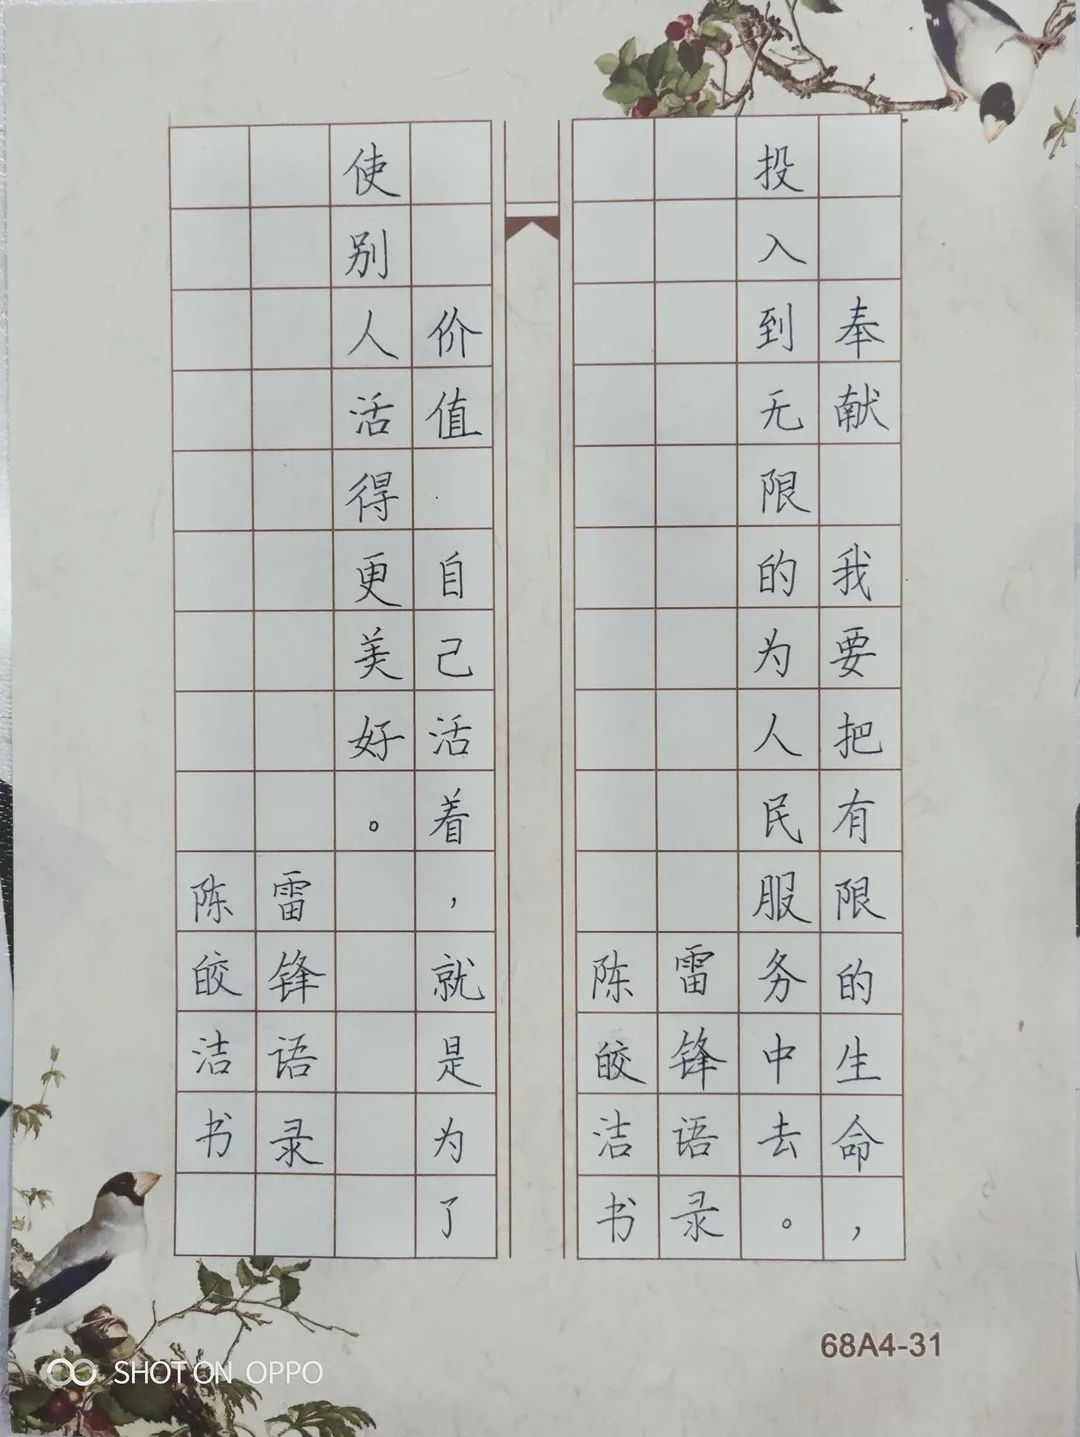 奉献 我要把有限的生命，
投入到无限的为人民服务中去。
雷锋语录
陈皎洁书
价值 自己活着，就是为了
使别人活得更美好。
雷锋语录
陈皎洁书
68A4-31
SHOT ON OPPO